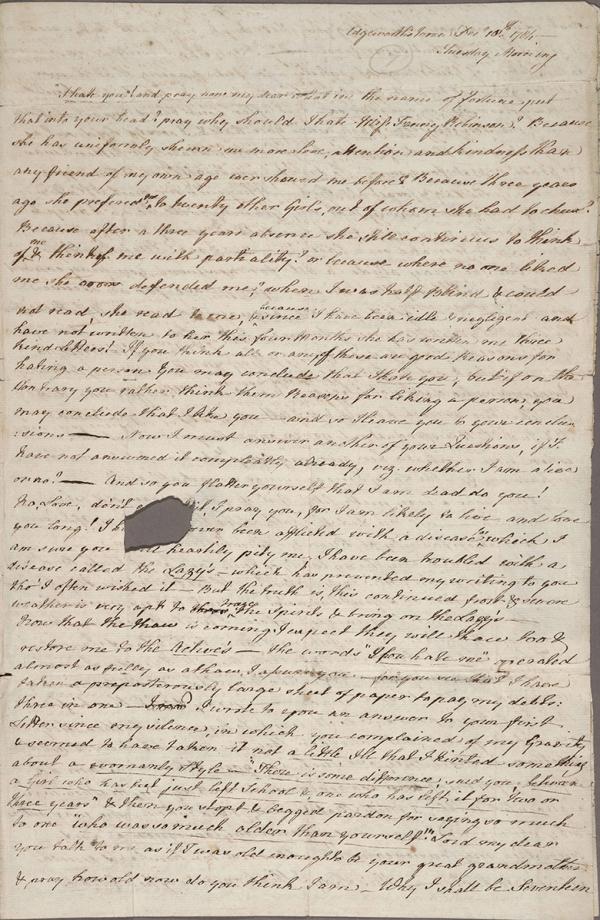 Edgeworths Town Dec. 18th 1784
Tuesday Morning
I hate you! and pray now my dear what in the name of fortune put
that into your head? pray why should I hate Miss Fanny Robinson? Because
she has uniformly shewn me more love, attention and kindness than
any friend of my own age ever showed me before? Because three years
ago she prefered me to twenty other Girls, out of whom she had to chuse?
Because after a three years absence she still continues to think
of me & think of me with partiality? or because where no one liked
me she defended me, when I was half blind & could
not read, she read to me, & because I have been idle & negligent and
have not written to her this four Months she has written me three
kind letters! If you think all or any of these are good Reasons for
hating a person You may conclude that I hate you; but if on the
Contrary you rather think them Reasons for liking a person, you
may conclude that I like you — and so I leave you to your conclu
:sions — Now I must answer another of your Questions, if I
have not answered it compleatly already, viz. whether I am alive
or no? — And so you flatter yourself that I am dead do you!
No, Love, don't I pray you, for I am likely to live and love
you long! I been afflicted with a disease, which I
am sure you will heartily pity me, I have been troubled with a
disease called the Lazy's — which has prevented my writing to you
tho' I often wished it — But the truth is, this continued frost & severe
weather is very apt to freeze the Spirits & bring on the Lazys —
Now that the thaw is coming I expect they will thaw too &
restore me to the Actives — the words "I you hate me" operated
almost as fully as a thaw, I assure you — for you see that I have
taken a preposterously large sheet of paper to pay my debts:
three in one — I wrote to you an answer to your first
Letter since my silence, in which you complained of my Gravity
& seemed to have taken it not a little Ill that I hinted something
about a womanly style — "There is some difference, said you, between
a Girl who has but just left School & one who has left it for two or
three years" & then you stopt & begged pardon for saying so much
to one "who was so much older than yourself"! Lord my dear
you talk to me as if I was old enough to be your great grandmother
& pray how old now do you think I am — Why I shall be Seventeen